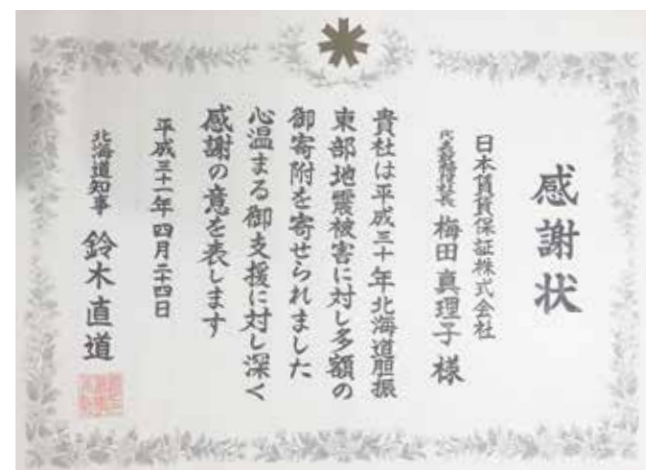 感謝状
日本賃貸保証株式会社
代表取締役社長 梅田真理子 様
貴社は平成三十年北海道胆振
東部地震被害に対し多額の
御寄附を寄せられました
心温まる御支援に対し深く
感謝の意を表します
平成三十一年四月二十四日
北海道知事 鈴木直道